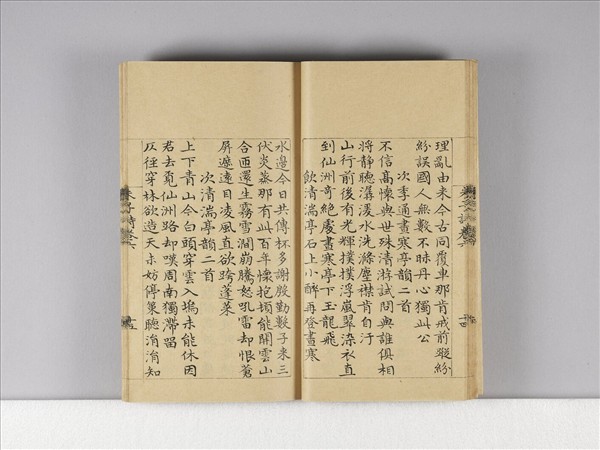 理亂由來今古同覆車那肯戒前蹤紛
紛誤國人無數不昧丹心獨此公
次季通晝寒亭韻二首
不信高懷與世殊清游試問與誰俱相
將靜聽潺湲水洗滌塵襟肯自汙
山行前後有光輝撲撲浮嵐翠染衣直
到仙洲奇絕處晝寒亭下玉龍飛
飲清湍亭石上小醉再登晝寒
水邊今日共傳杯多謝殷勤數子來三
伏炎蒸那有此百年懷抱頓能開雲山
合匝還生霧雪澗崩騰怒吼雷却恨蒼
屏遮遠目凌風直欲跨蓬萊
次清湍亭韻二首
上下青山今白頭穿雲入塢未能休因
君去覓仙洲路却嘆周南獨滯留
仄徑穿林欲造天未妨停策聽涓涓知